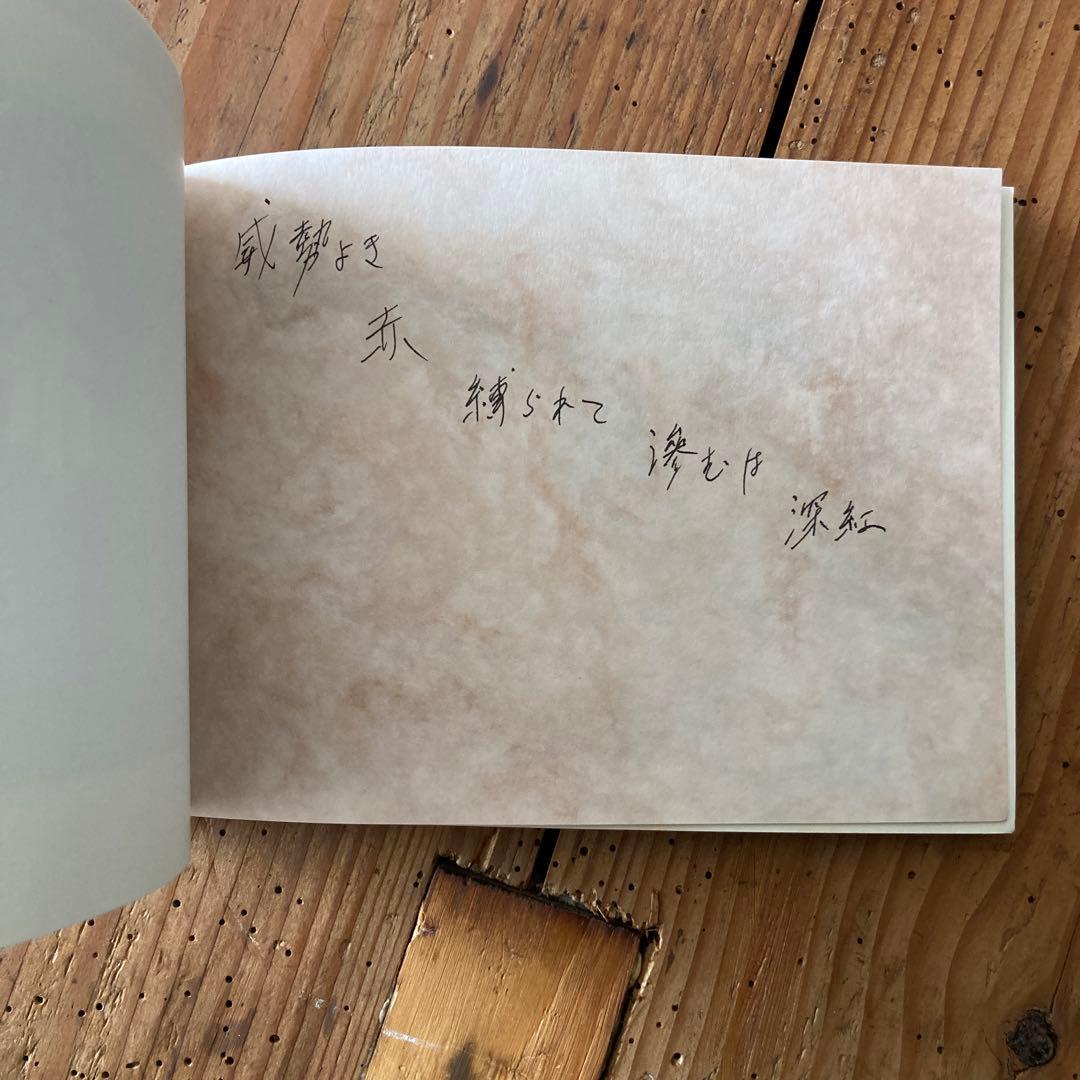 威勢よき
赤
縛られて
滲むは
深紅